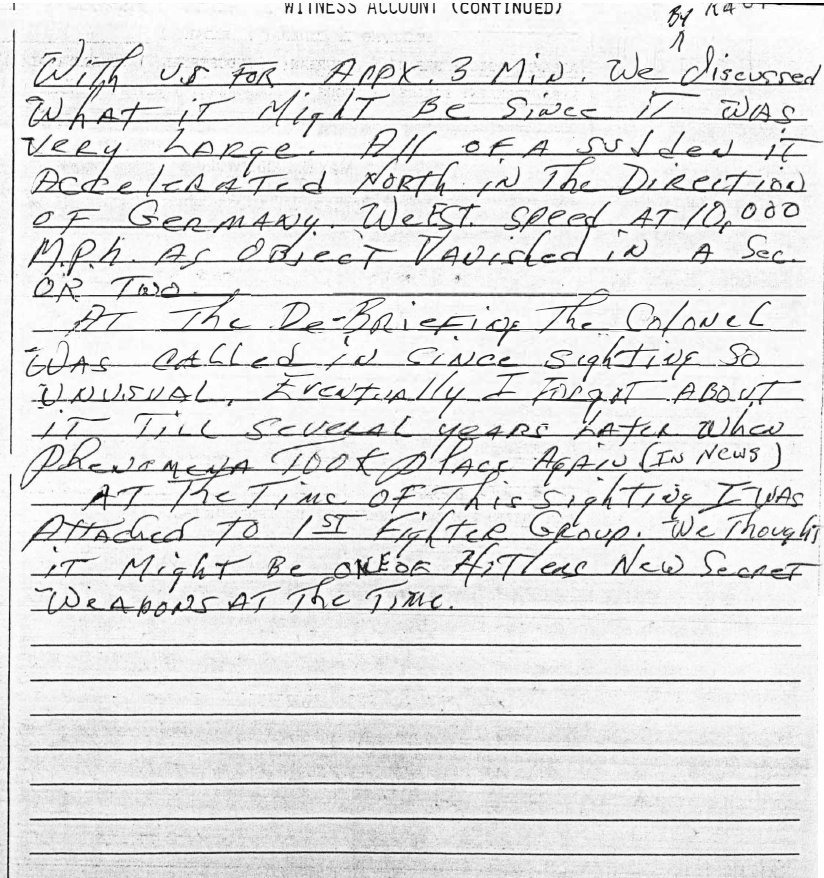 WITNESS ACCOUNT (CONTINUED)
By
With us For Appx. 3 Min. We discussed
What it Might Be Since it was
very Large. All of A sudden it
Accelerated North in The Direction
of Germany. We Est. speed AT 10,000
M.P.h. As Object Vanished in A Sec.
OR Two.
AT The De-Briefing The Colonel
WAS CALLed in Since Sighting So
UNUSUAL. Eventually I Forgot ABOUT
it Till Several years Later When
Phenomena Took Place Again (In News)
AT The Time OF This Sighting I WAS
Attached to 1ST Fighter Group. We Thought
it Might Be ONE OF Hitlers New Secret
Weapons AT The Time.